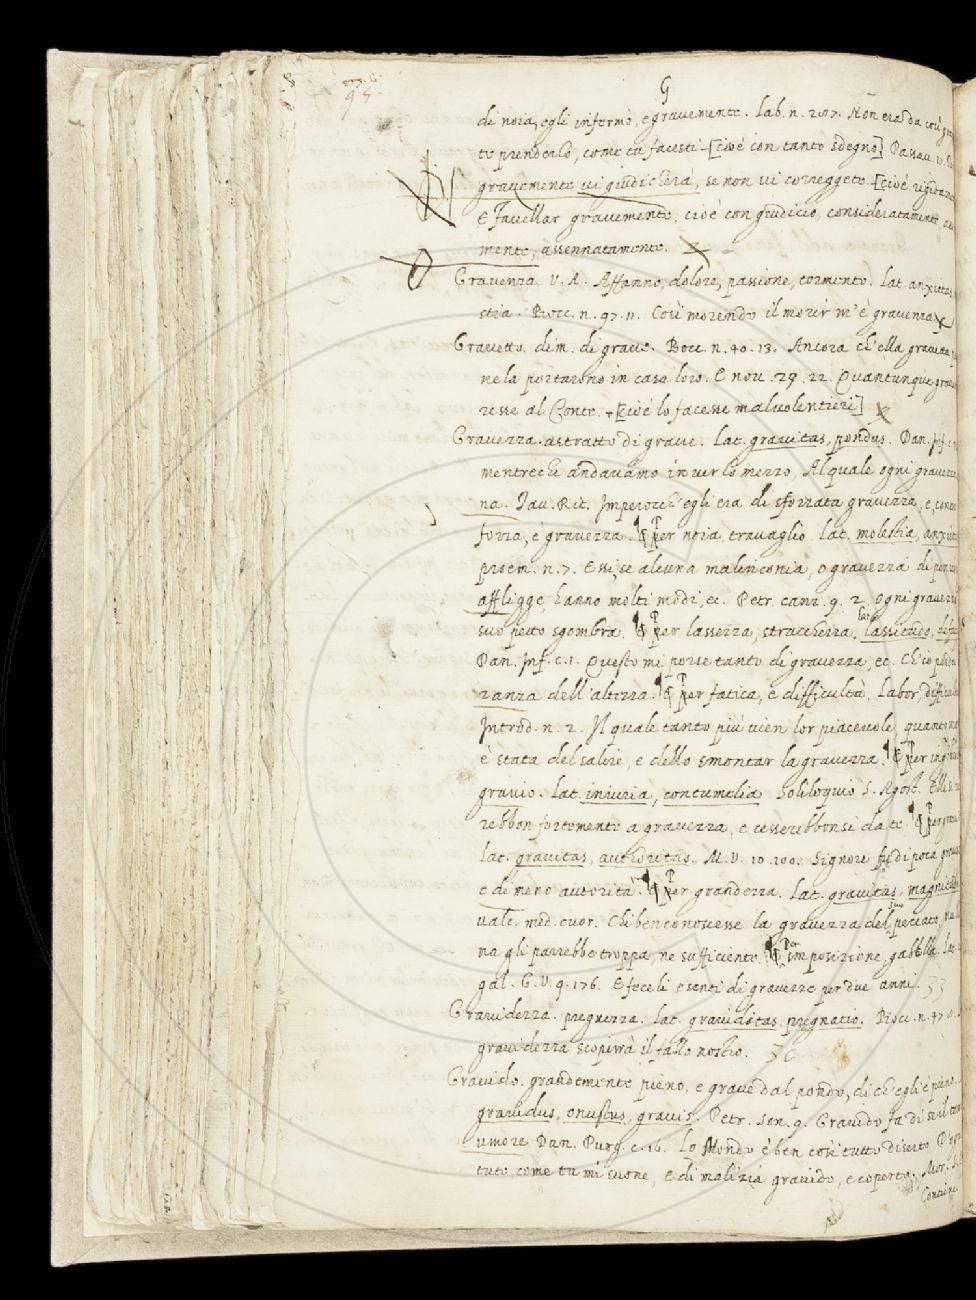 G
di noia, egli infermò, e gravemente. Lab. n. 207. Non era da così
to prenderlo, come tu facesti [cioè con tanto sdegno] Passav.
gravemente vi giudicherà, se non vi correggete. [cioè
E Favellar gravemente, cioè con giudicio, consideratamente,
mente, assennatamente.
Gravenza. V. A. Affanno, dolore, passione, tormento. Lat. anxietas
stia. Bocc. n. 97. 11. Così morendo il morir m'è gravenza
Gravetto. dim. di grave. Bocc. n. 40. 13. Ancora ch'ella gravetta
ne la portarono in casa loro. E nov. 29. 22. Quantunque grave
resse al Conte. [cioè lo facesse malvolentieri]
Gravezza. astratto di grave. Lat. gravitas, pondus. Dan. Inf. c.
mentreche andavamo inver lo mezzo, Al quale ogni gravezza
na. Tav. Rit. Imperocch'egli era di sforzata gravezza, e, contra
forza, e gravezza. ¶ Per noia, travaglio. Lat. molestia,
proem. n. 7. Essi, se alcuna malinconia, o gravezza di
affligge, hanno molti modi, ec. Petr. canz. 9. 2. Ogni gravezza
suo petto sgombra. ¶ Per lassezza, stracchezza. lat. lassitudo,
Dan. Inf. c. 1. Questa mi porse tanto di gravezza, ec. Ch'io
ranza dell'altezza. ¶ Per fatica, e difficultà. Labor,
Introd. n. 2. Il quale tanto più vien lor piacevole, quanto
è stata del salire, e dello smontar la gravezza. ¶ Per
gravio. Lat. iniuria, contumelia. Soliloquio S. Agost.
rebbon fortemente a gravezza, e cesserebbonsi da te. ¶ Per
Lat. gravitas, authoritas. M. V. 10. 100. Signore fu di poca
e di meno autorità. ¶ Per grandezza. Lat. gravitas,
valc. med. cuor. Chi ben conoscesse la gravezza del suo peccato,
na gli parrebbe troppa, ne sufficiente. ¶ Per imposizione, gabella. Lat.
gal. G. V. 9. 176. E feceli esenti di gravezze per due anni.
Gravidezza. pregnezza. Lat. graviditas, pregnatio. Bocc. n. 47.
gravidezza scoprirrà il fallo nostro.
Gravido. grandemente pieno, e grave dal pondo, di ch'egli è pieno.
gravidus, onustus, gravis. Petr. son. 9. Gravido fa di se il
umore Dan. Purg. c. 16. Lo Mondo è ben così tutto diserto D'
tute come tu mi suone, e di malizia gravido, e coperto. Mor.